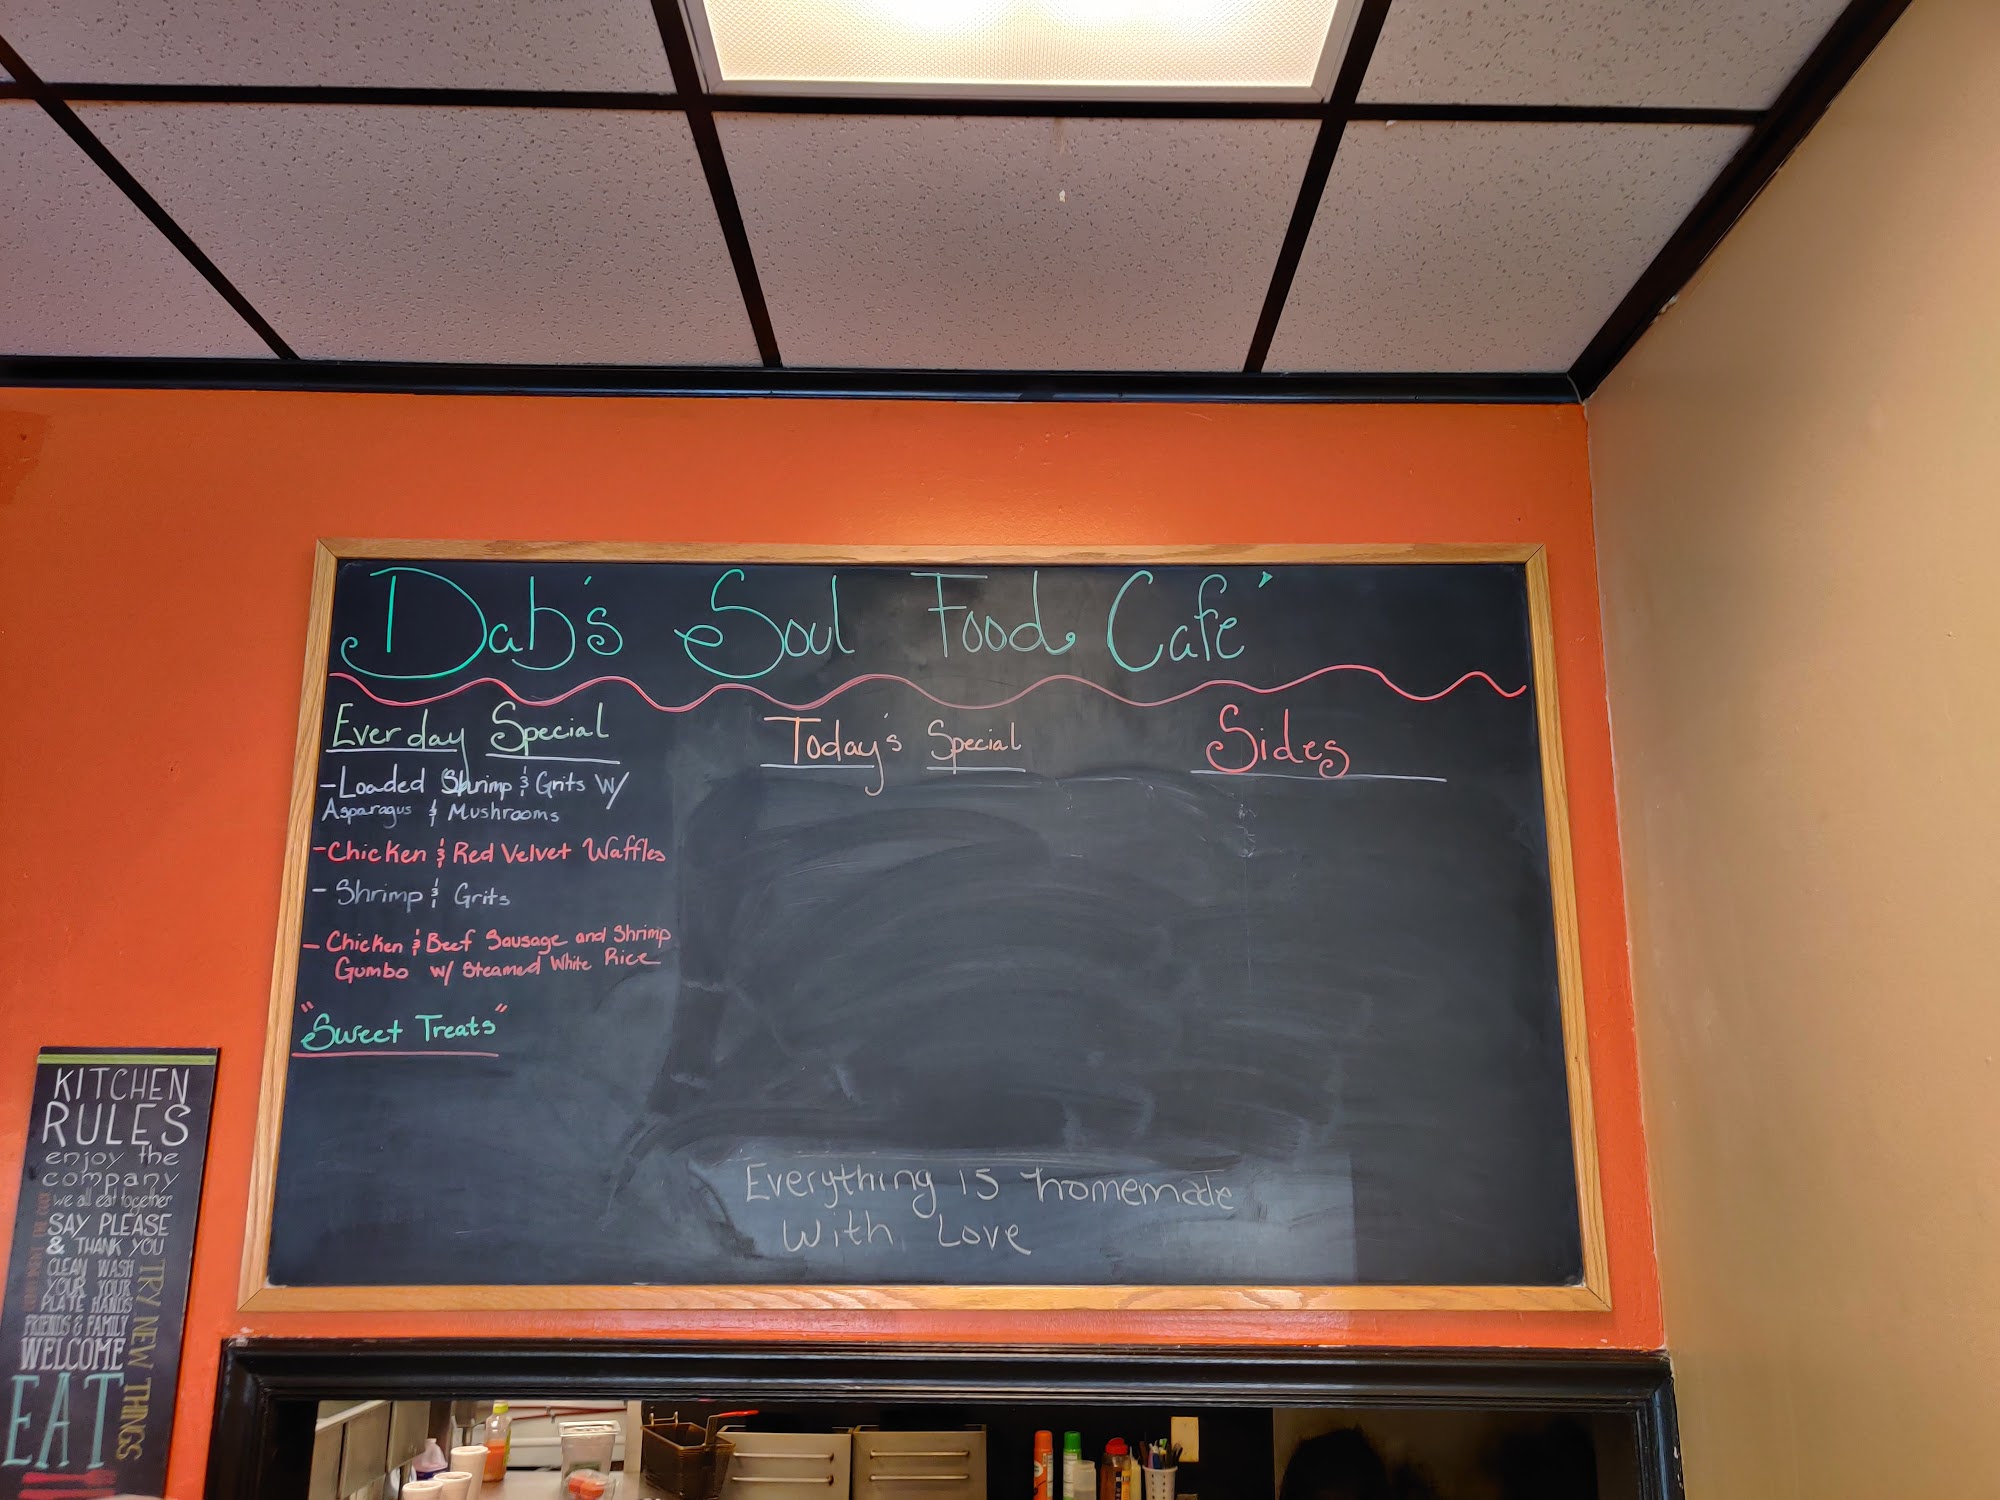 Dab's Soul Food Cafe'
Everday Special
- Loaded Shrimp & Grits W/
Asparagus & Mushrooms
- Chicken & Red Velvet Waffles
- Shrimp & Grits
- Chicken & Beef Sausage and Shrimp
Gumbo w/ Steamed White Rice
"Sweet Treats"
Today's Special
Sides
Everything is homemade
With Love
KITCHEN
RULES
enjoy the
company
we all eat together
SAY PLEASE
& THANK YOU
CLEAN YOUR PLATE
WASH YOUR HANDS
FRIENDS & FAMILY
WELCOME
EAT
TRY NEW THINGS